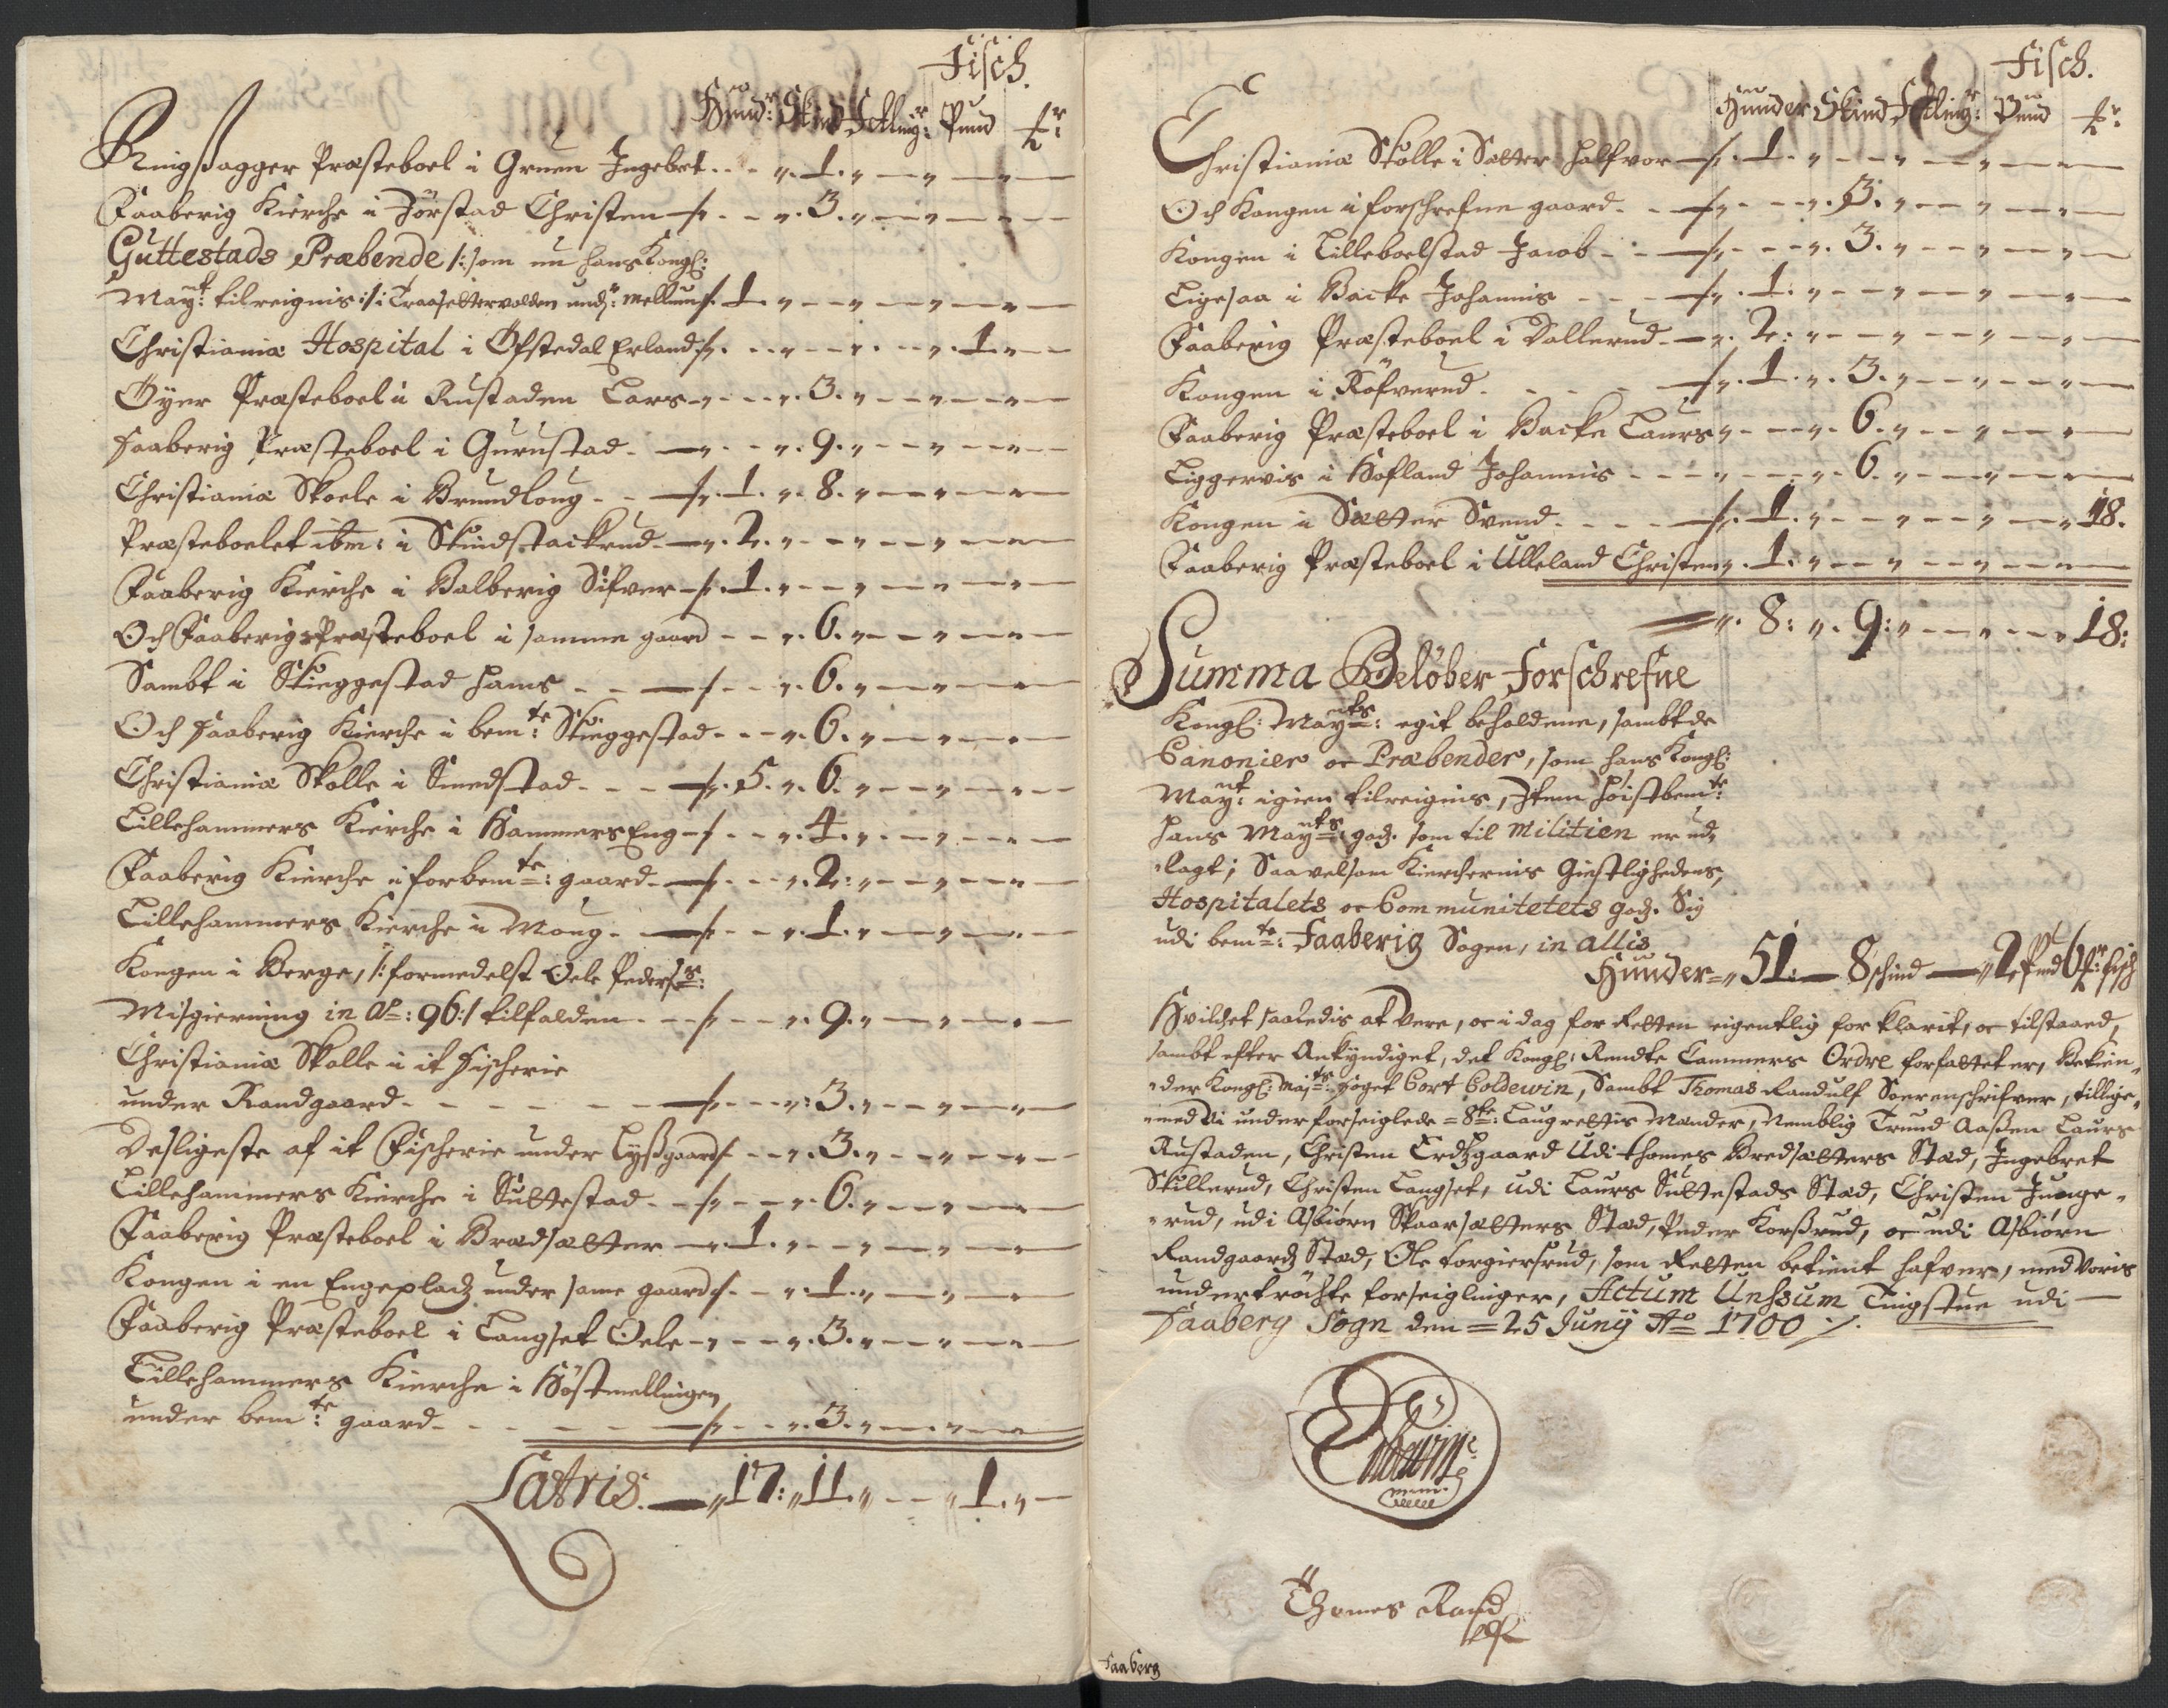 Fisch.
Hund: Skind Setting: Pund
Ringßagger Præsteboel i Gruen Ingebret - - „ . 1 . „ — „ — „ —
Faaberig Kierche i Jörstad Christen - - „ . 3 . „ — „ — „ —
Guttestads Præbende /: som nu hans Kongl:
Mayt: tilreignis :/ i Traasettervolden und: Mellum . 1 . „ — „ — „ — „ —
Christianiæ Hospital i Öfstedal Erland - - „ - - „ - - „ . 1 . „ —
Öyer Præsteboel i Rustaden Lars - - „ . 3 . „ — „ — „ —
Faaberig Præsteboel i Gurustad - - „ . 9 . „ — „ — „ —
Christianiæ Skoele i Brundloug - - „ . 1 . „ . 8 . „ — „ — „ —
Præsteboelet ibm: i Skindstackrud - „ . 2 . „ — „ — „ — „ —
Faaberig Kierche i Balberig Sifver - . 1 . „ — „ — „ — „ —
Och Faaberigs Præsteboel i samme gaard - - „ . 6 . „ — „ — „ —
Sambt i Skieggestad Hans - - - „ . 6 . „ — „ — „ —
Och Faaberig Kierche i bemte: Skieggestad - - „ . 6 . „ — „ — „ —
Christianiæ Skolle i Smedstad - - - „ . 5 . „ . 6 . „ — „ — „ —
Lillehammers Kierche i Hammers Eng - - „ . 4 . „ — „ — „ —
Faaberig Kierche i forbemte: gaard - - „ . 2 : „ — „ — „ —
Lillehammers Kierche i Moug - - „ . 1 . „ — „ — „ —
Kongen i Berge, /: formedelst Oele Peders:
Misgierning in Ao: 96 :/ tilfalden - - „ . 9 . „ — „ — „ —
Christianiæ Skolle i it Fischerie
under Randgaard - - - - - „ : 3 . „ — „ — „ —
Desligeste af it Fischerie under Lyßgaard - - „ . 3 . „ — „ — „ —
Lillehammers Kierche i Suttestad - - „ . 6 . „ — „ — „ —
Faaberig Præsteboel i Brædsætter - „ . 1 . „ — „ — „ — „ —
Kongen i en Engeplads under same gaard - - „ . 1 . „ — „ — „ —
Faaberig Præsteboel i Langset Oele - - „ . 3 . „ — „ — „ —
Lillehammers Kierche i Höstmellingen
under bemte: gaard - - - - „ . 3 . „ — „ — „ —
Latris . — „ 17 : „ 11 . „ - - „ 1 . „ —
Fisch.
Hunder Skind Setting: Pund
Christianiæ Skolle i Sætter Halfvor - . 1 . „ — „ — „ — „ —
Och Kongen i forschrefne gaard - - „ . 3 . „ — „ — „ —
Kongen i Lilleboelstad Jacob - - „ . 3 . „ — „ — „ —
Ligesaa i Backe Johannis - - - „ . 1 . „ — „ — „ — „ —
Faaberig Præsteboel i Dallerud - „ . 2 : „ — „ — „ — „ —
Kongen i Röfverud - - - „ . 1 . „ . 3 . „ — „ — „ —
Faaberig Præsteboel i Backe Laurs „ - - „ . 6 . „ — „ — „ —
Liggervis i Hofland Johannis - - - „ - - „ . 6 . „ — „ — „ —
Kongen i Sætter Svend - - - - . 1 . „ — „ — „ — „ 18 .
Faaberig Præsteboel i Ulleland Christen „ . 1 . „ — „ — „ — „ —
„ . 8 : „ . 9 : „ — „ — „ 18 :
Summa Beløber Forschrefne
Kongl: Mayts: egit beholdene, sambt de
Canonier oc Præbender, som hans Kongl:
Mayt: igien tilreignis, Item höistbemte:
Hans Mayts: gods. som til Militien er ud„
„lagt; Saavelsom Kierchernis Giestlighedens,
Hospitalets oc Communitetets gods. Sig
udi bemte: Faaberig Sogen, in allis
Hunder = „ 51 : — 8 schind — „ 2 Pund 6 fisch
Hvilchet saaledis at Være, oc i dag for Retten eigentlig forklarit, oc tilstaaed,
sambt efter Ankyndiget, det Kongl: Rendte Cammers Ordre forfattet er, Bekien„
„der Kongl: Majts: Foget Cort Coldewin, Sambt Thomas Randulf Soerenschrifver, tillige„
„med Vi underforseiglede = 8te: Laugrettis Mænder, Nemblig Trund Aaßen Laurs
Rustaden, Christen Erdsgaard Udi Thomes Bredsætters Stæd, Ingebret
Skullerud, Christen Langset, udi Laurs Suttestads Stæd, Christen Junge„
„rud, udi Asbiørn Skaarsætters Stæd, Peder Korßrud, oc udi Asbiørn
Randgaards Stæd, Ole Torgiersrud, som Retten betient hafver, med Voris
undertröchte forseiglinger, Actum Unssum Tingstue udi —
Faaberg Sogn den = 25 Juny Ao 1700 ./.
Thomes Rand
Faaberg